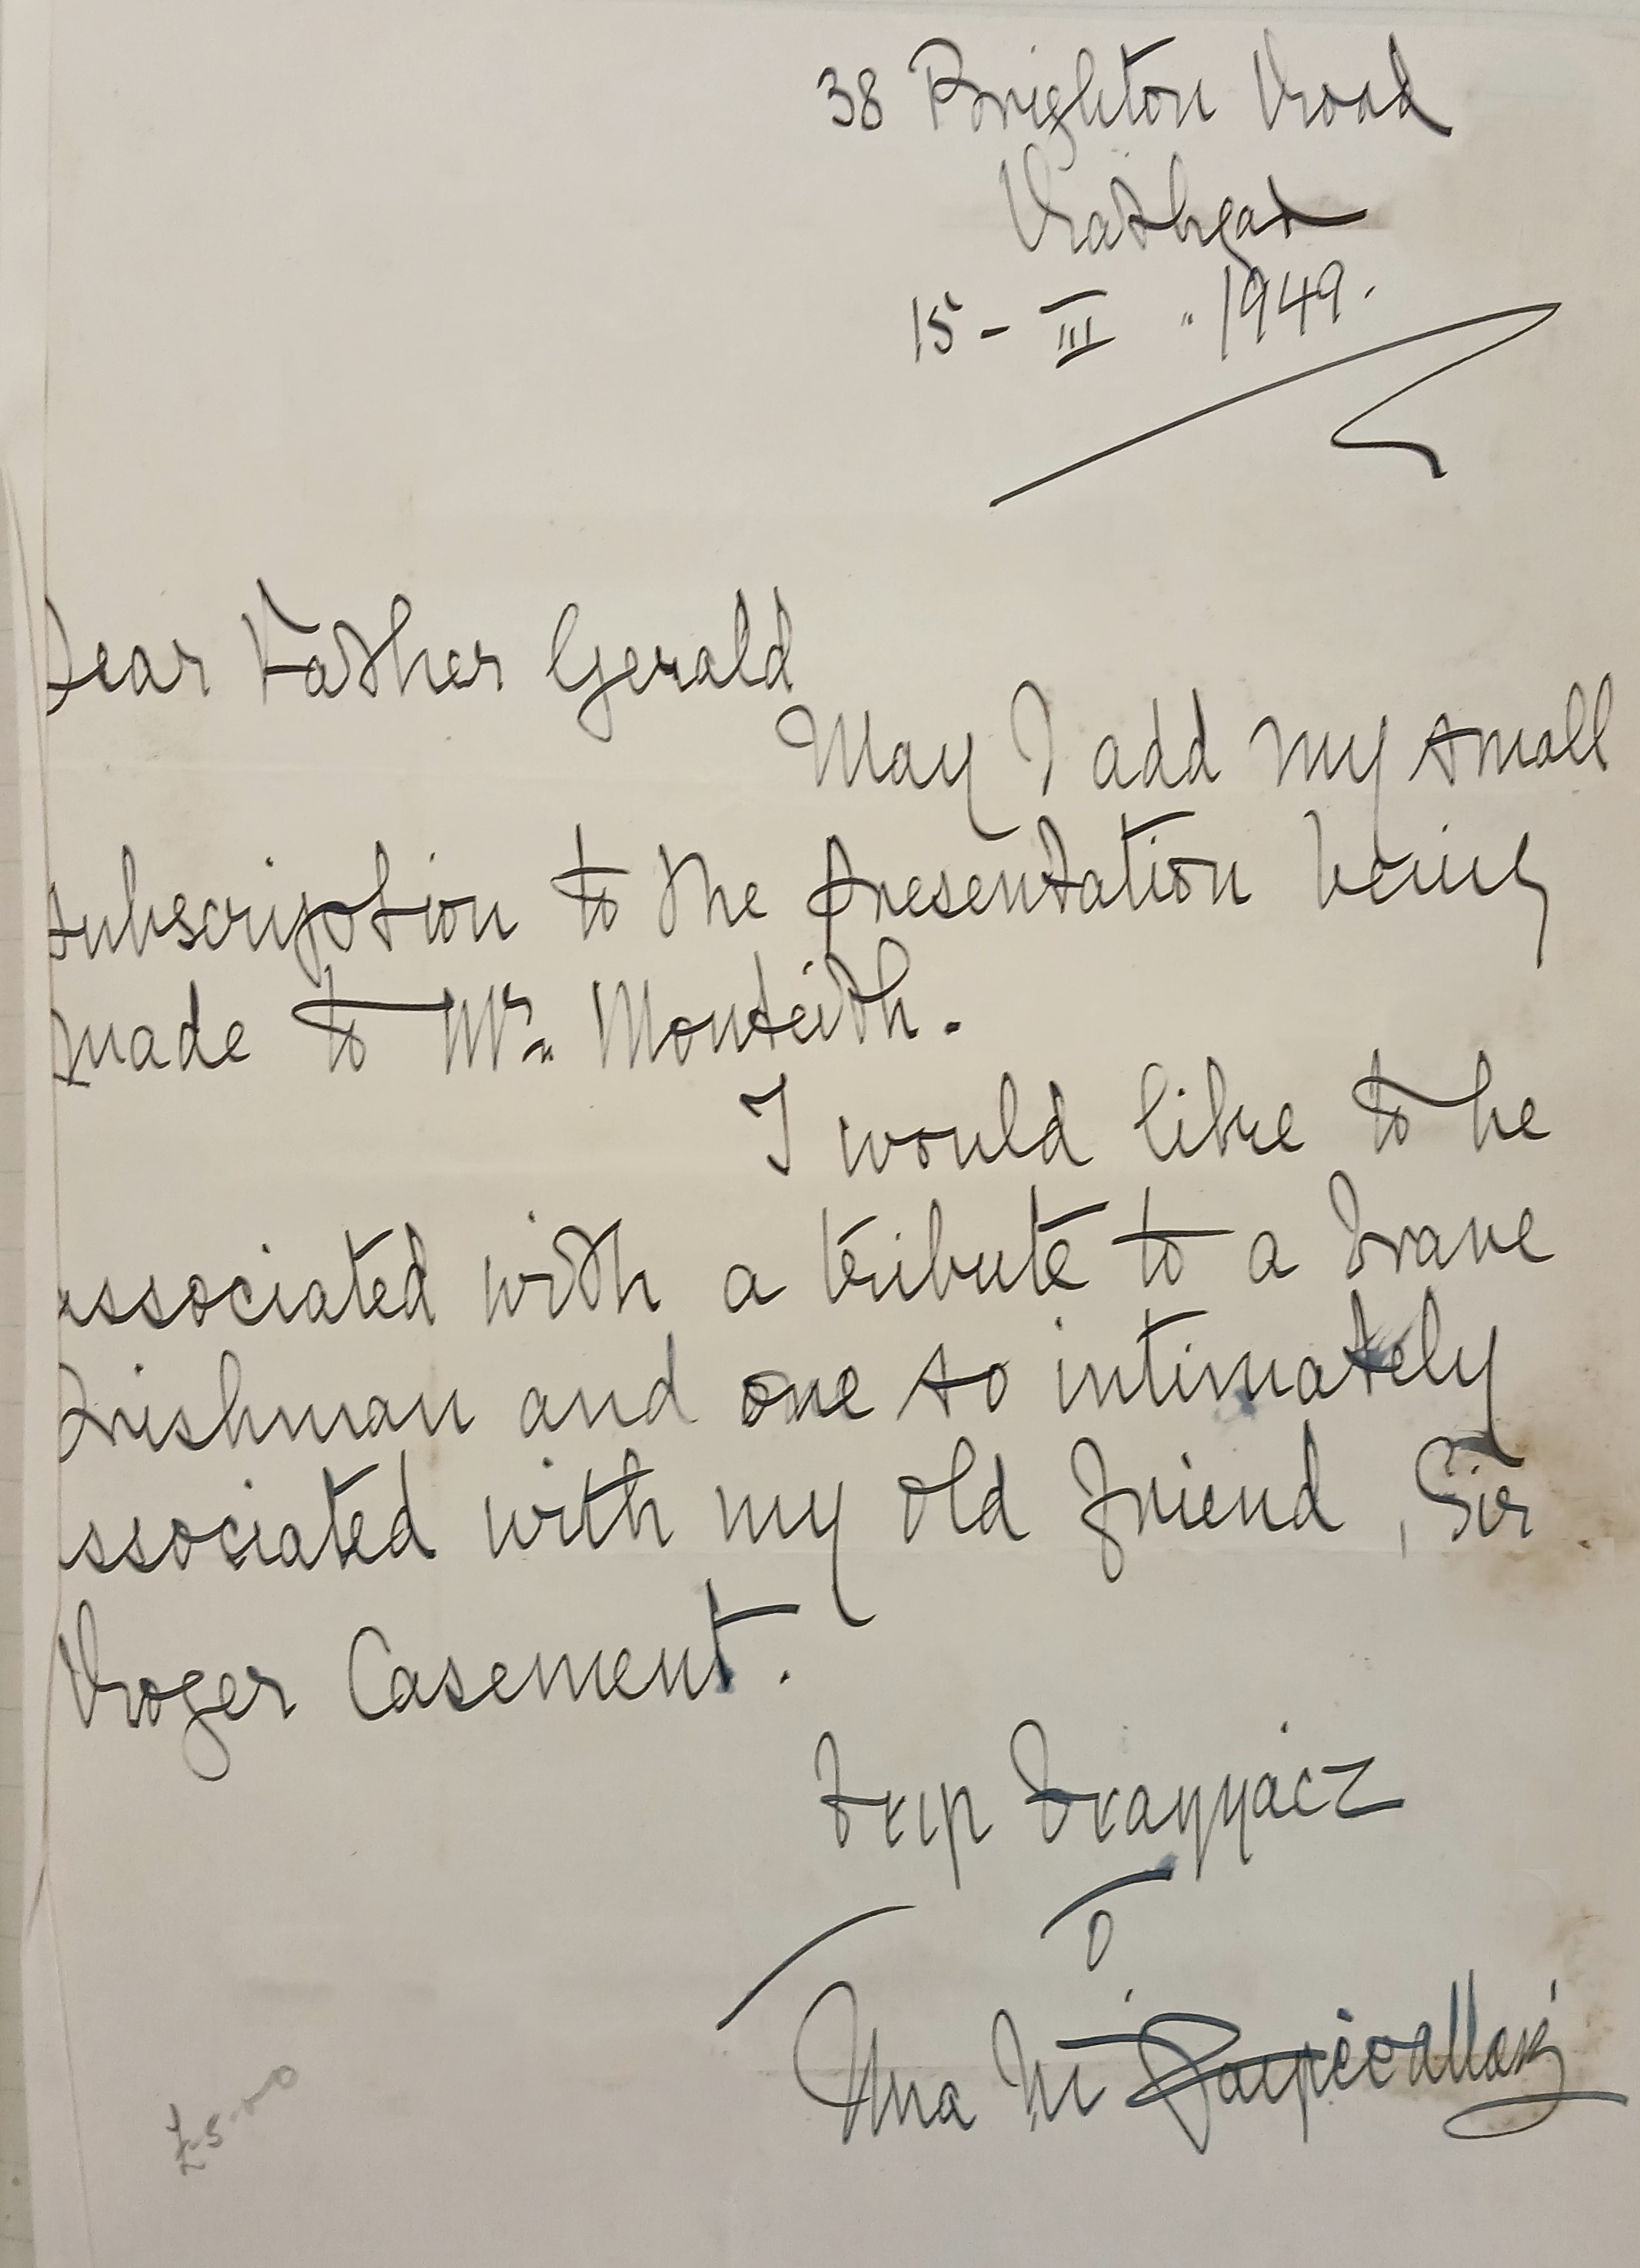 38 Brighton Road
Rathgar
15 - III . 1949.
Dear Father Gerald
May I add my small
subscription to the presentation being
made to Mr. Monteith.
I would like to be
associated with a tribute to a brave
Irishman and one so intimately
associated with my old friend, Sir
Roger Casement.
beir beannaċt
ó
Úna Ní Ḟairċeallaiġ
£5-0-0